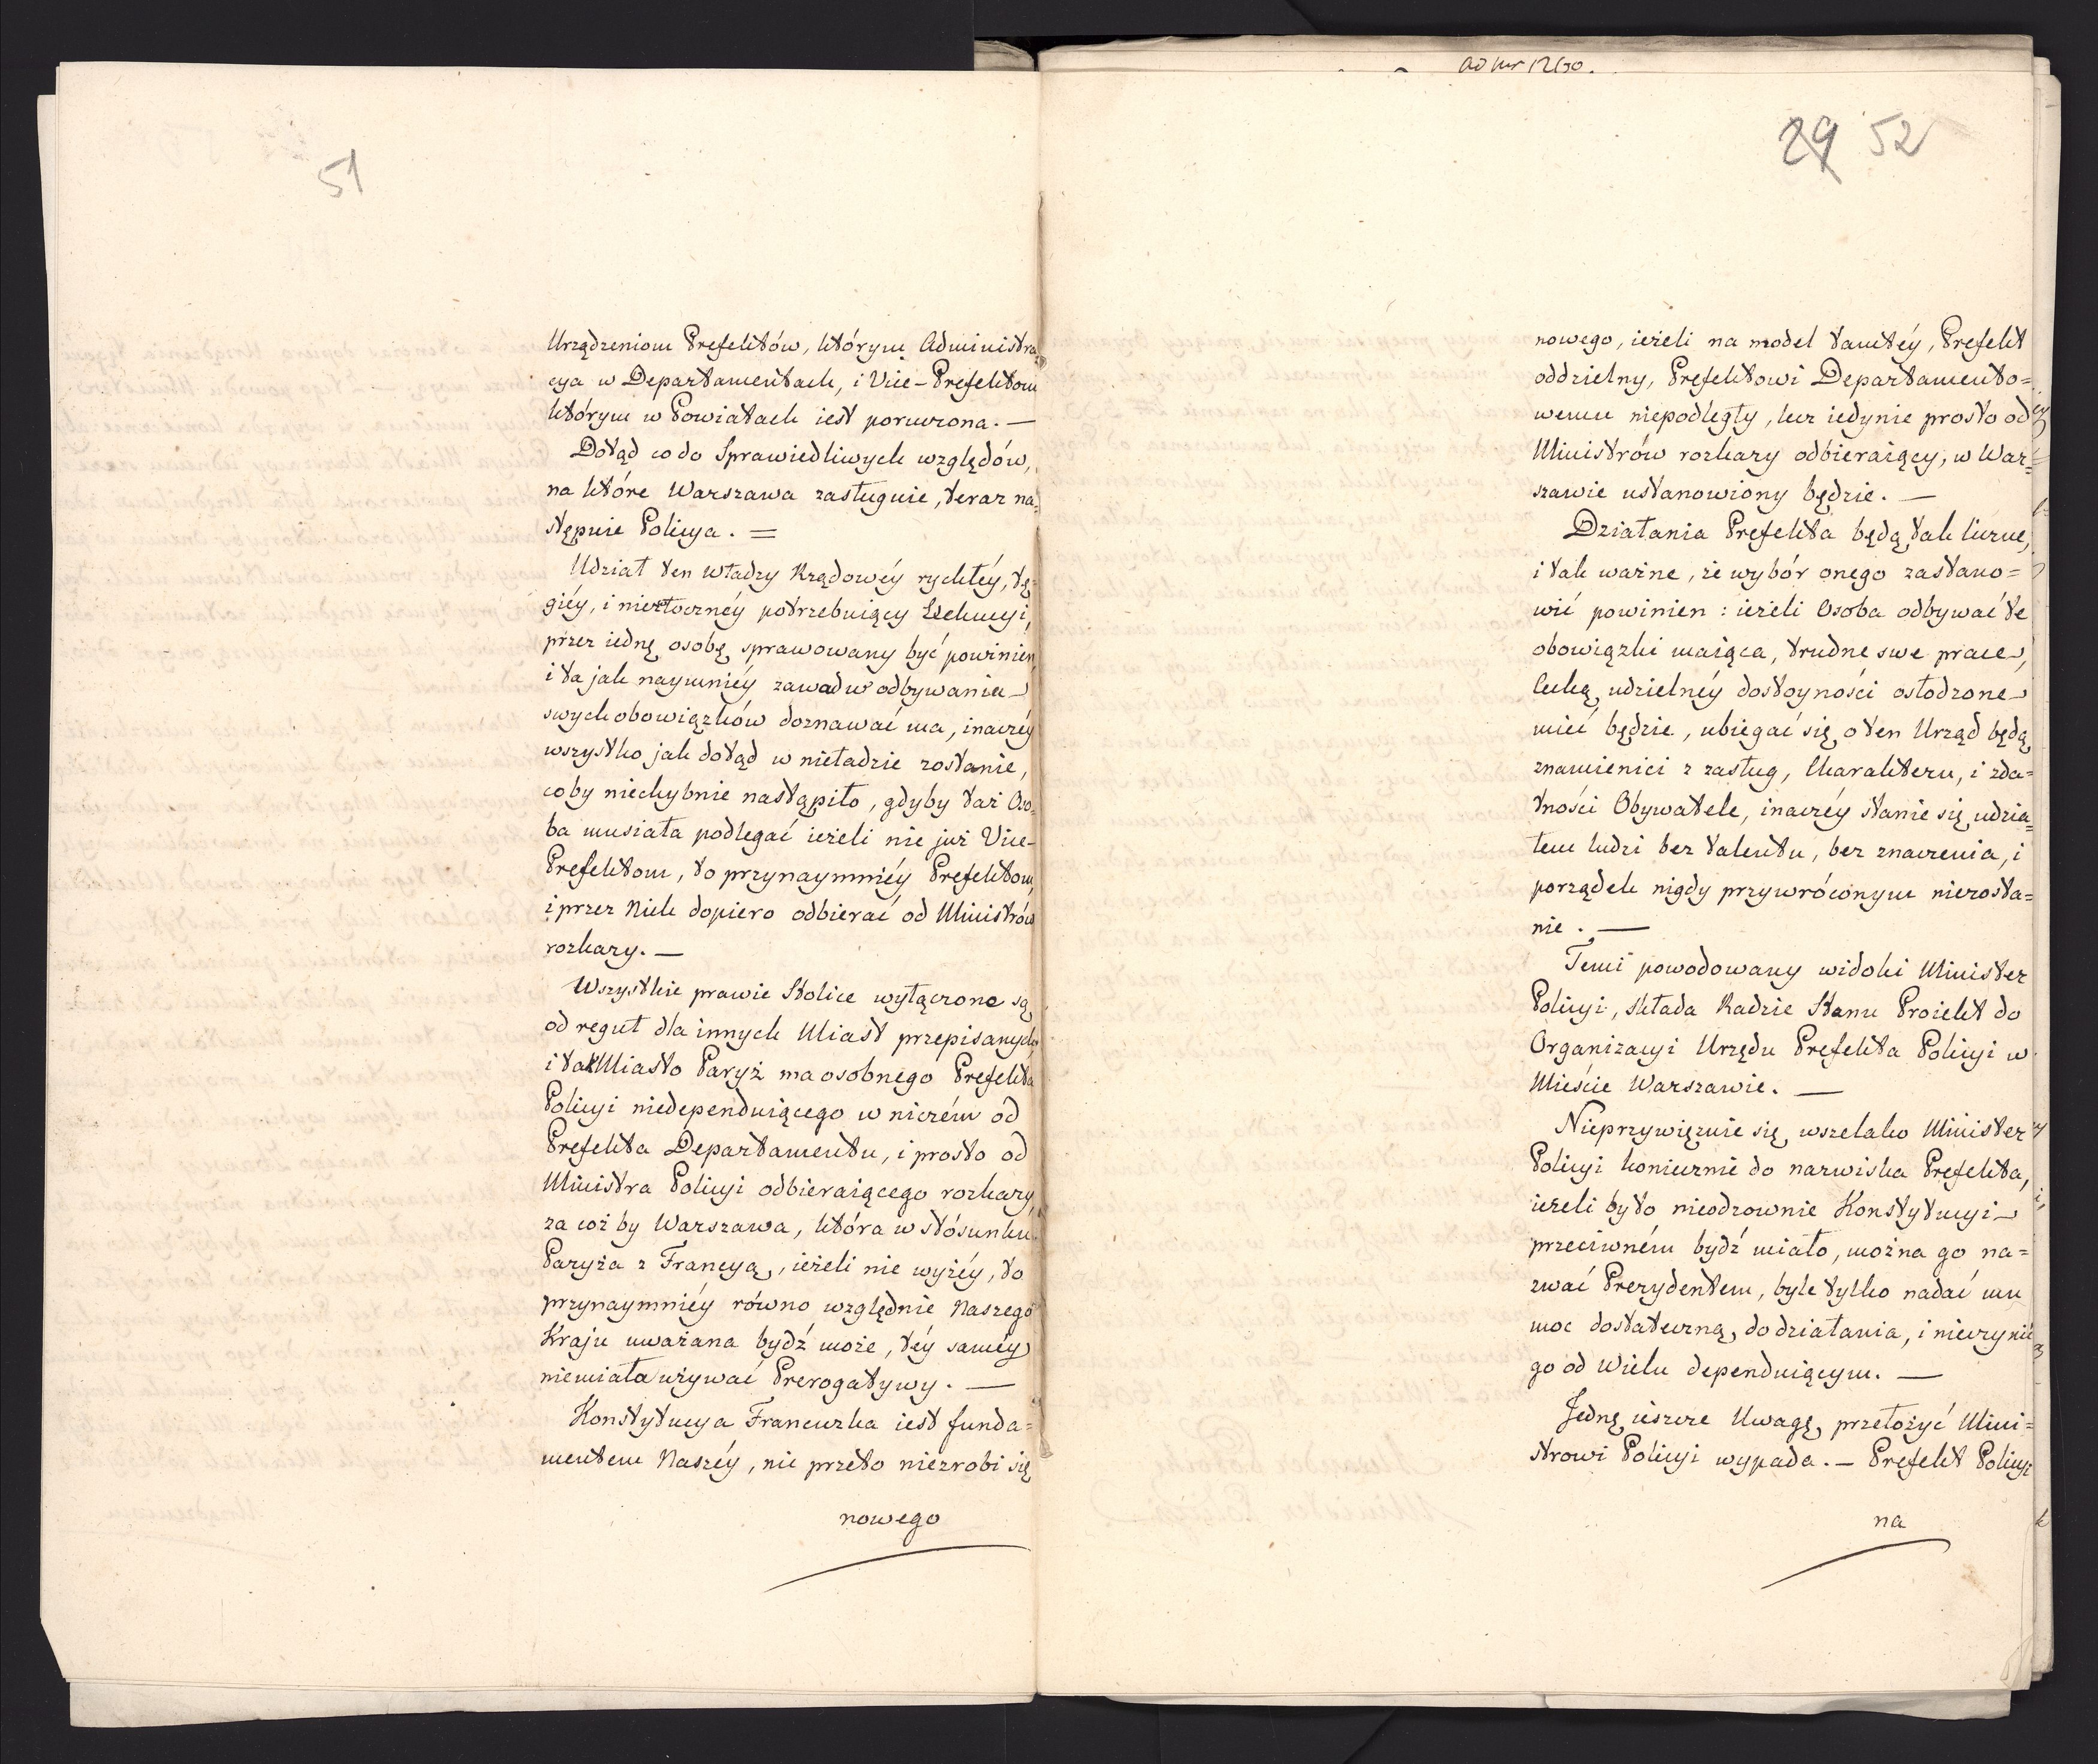 51
Urządzeniom Prefektów, którym Administra=
cya w Departamentach, i Vice-Prefektom
którym w Powiatach iest poruczona. —
Dotąd co do Sprawiedliwych względów,
na które Warszawa zasługuie, teraz na=
stępuie Policya. =
Udział ten władzy Rządowéy rychłéy, tę=
giéy, i niezłocznéy potrzebuiący Exekucyi,
przez iednę osobę sprawowany być powinien,
i ta jak naymniéy zawad w odbywaniu
swych obowiązków doznawać ma, inaczéy
wszystko jak dotąd w nieładzie zostanie,
coby niechybnie nastąpiło, gdyby taż Oso=
ba musiała podlegać ieżeli nie już Vice-
Prefektom, to przynaymniéy Prefektom,
i przez Nich dopiero odbierać od Ministrów
rozkazy. —
Wszystkie prawie Stolice wyłączone są
od reguł dla innych Miast przepisanych,
i tak Miasto Paryż ma osobnego Prefekta
Policyi niedependuiącego w niczém od
Prefekta Departamentu, i prosto od
Ministra Policyi odbieraiącego rozkazy,
za coż by Warszawa, która w stósunku
Paryża z Francyą, ieżeli nie wyżéy, to
przynaymniéy równo względnie Naszego
Kraju uważana bydź może, téy saméy
niemiała używać Prerogatywy. —
Konstytucya Francuzka iest funda=
mentem Naszéy, nic przeto niezrobi się
nowego
ad Nr 1260.
29 52
nowego, ieżeli na model tamtéy, Prefekt
oddzielny, Prefektowi Departamento=
wemu niepodległy, lecz iedynie prosto od
Ministrów rozkazy odbieraiący, w War=
szawie ustanowiony będzie. —
Działania Prefekta będą tak liczne,
i tak ważne, że wybór onego zastano=
wić powinien: ieżeli Osoba odbywać te
obowiązki maiąca, trudne swe prace,
Cechą udzielnéy dostoyności osłodzone
mieć będzie, ubiegać się o ten Urząd będą
znamienici z zasług, Charakteru, i zda=
tności Obywatele, inaczéy stanie się udzia=
łem ludzi bez talentu, bez znaczenia, i
porządek nigdy przywróconym niezosta=
nie. —
Temi powodowany widoki Minister
Policyi, składa Radzie Stanu Proiekt do
Organizacyi Urzędu Prefekta Policyi w
Mieście Warszawie. —
Nieprzywięzuie się wszelako Minister
Policyi koniecznie do nazwiska Prefekta,
ieżeli by to nieodzownie Konstytucyi
przeciwném bydź miało, można go na=
zwać Prezydentem, byle tylko nadać mu
moc dostateczną do działania, i nieczynić
go od wielu dependuiącym. —
Jednę ieszcze Uwagę przełożyć Mini=
strowi Policyi wypada. — Prefekt Policyi
na